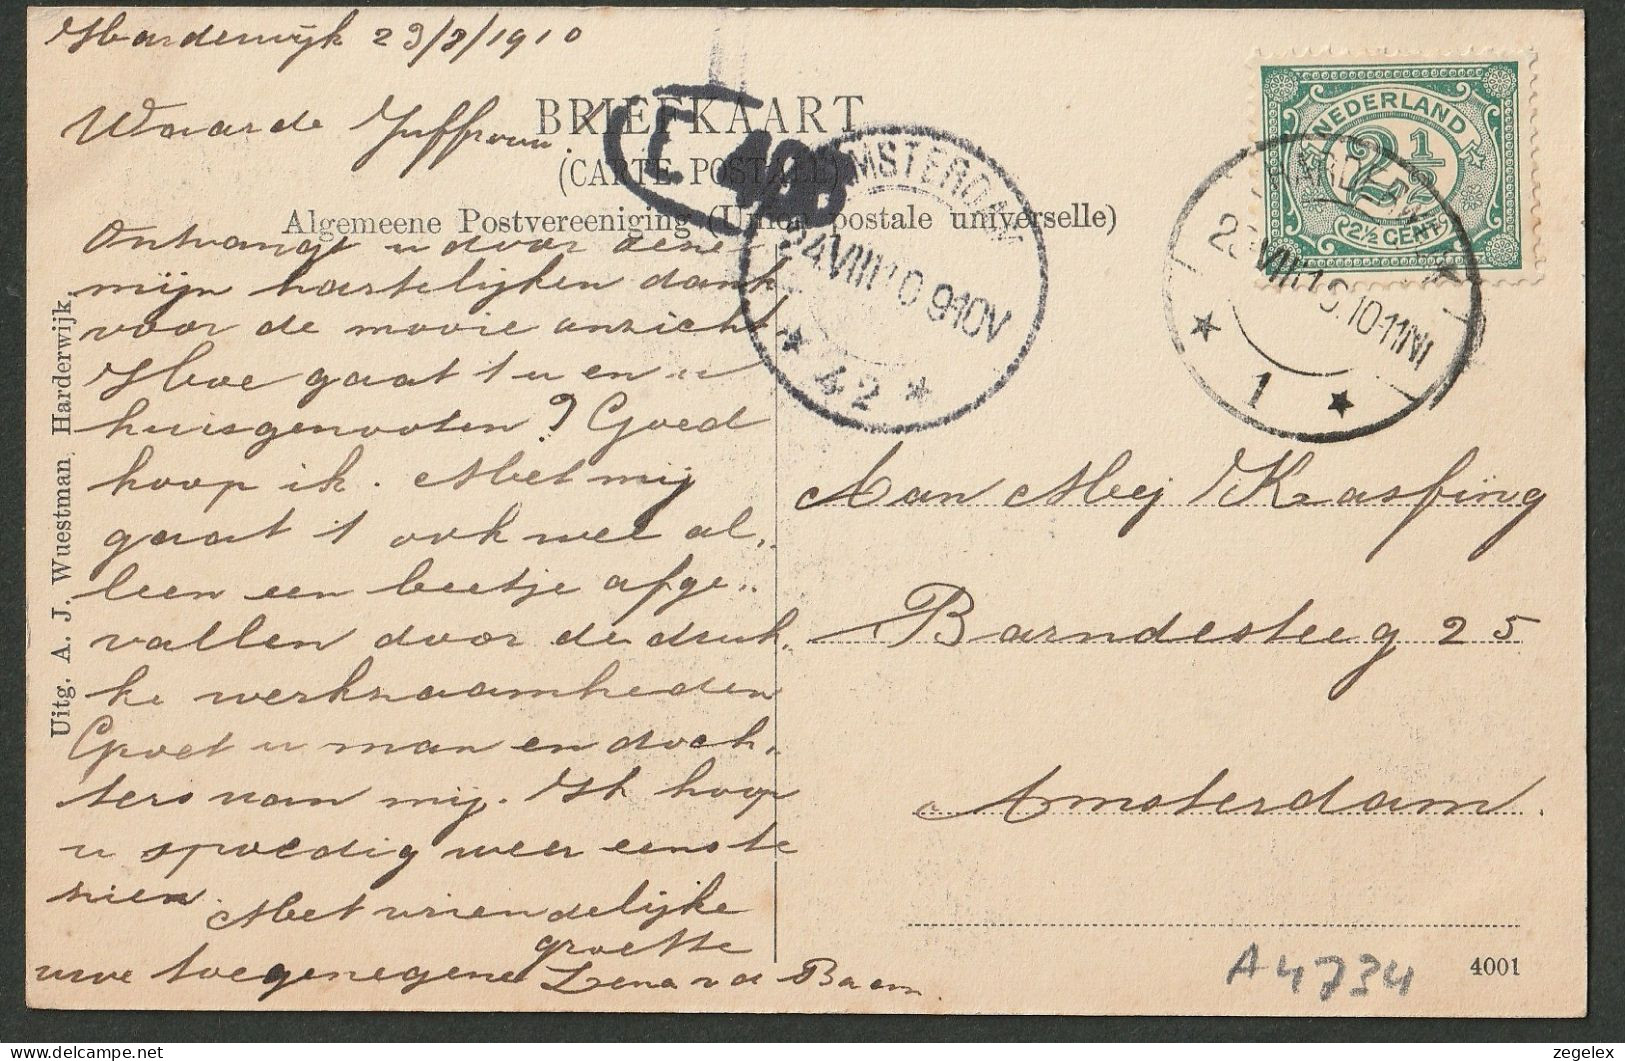 Harderwijk 23/8/1910
Waarde Juffrouw.
BRIEFKAART
(CARTE POSTALE)
Algemeene Postvereeniging (Union postale universelle)
Ontvangt u door deze
mijn hartelijken dank
voor de mooie anzicht
Hoe gaat 't u en u
huisgenooten? Goed
hoop ik. Met mij
gaat 't ook wel al,
leen een beetje afge„
vallen door de druk„
ke werkzaamheden
Groet u man en doch„
ters van mij. Ik hoop
u spoedig weer eens te
zien. Met vriendelijke
groette
uwe toegenegene Lena v d Baan.
Uitg. A. J. Wuestman, Harderwijk.
NEDERLAND
2 1/2
2½ CENT
VIII 10 10-11N
1
AMSTERDAM
24 VIII 10 9-10V
42
Aan Mej Krasfing
Barndesteeg 25
Amsterdam.
A4734
4001
zegelex
www.delcampe.net